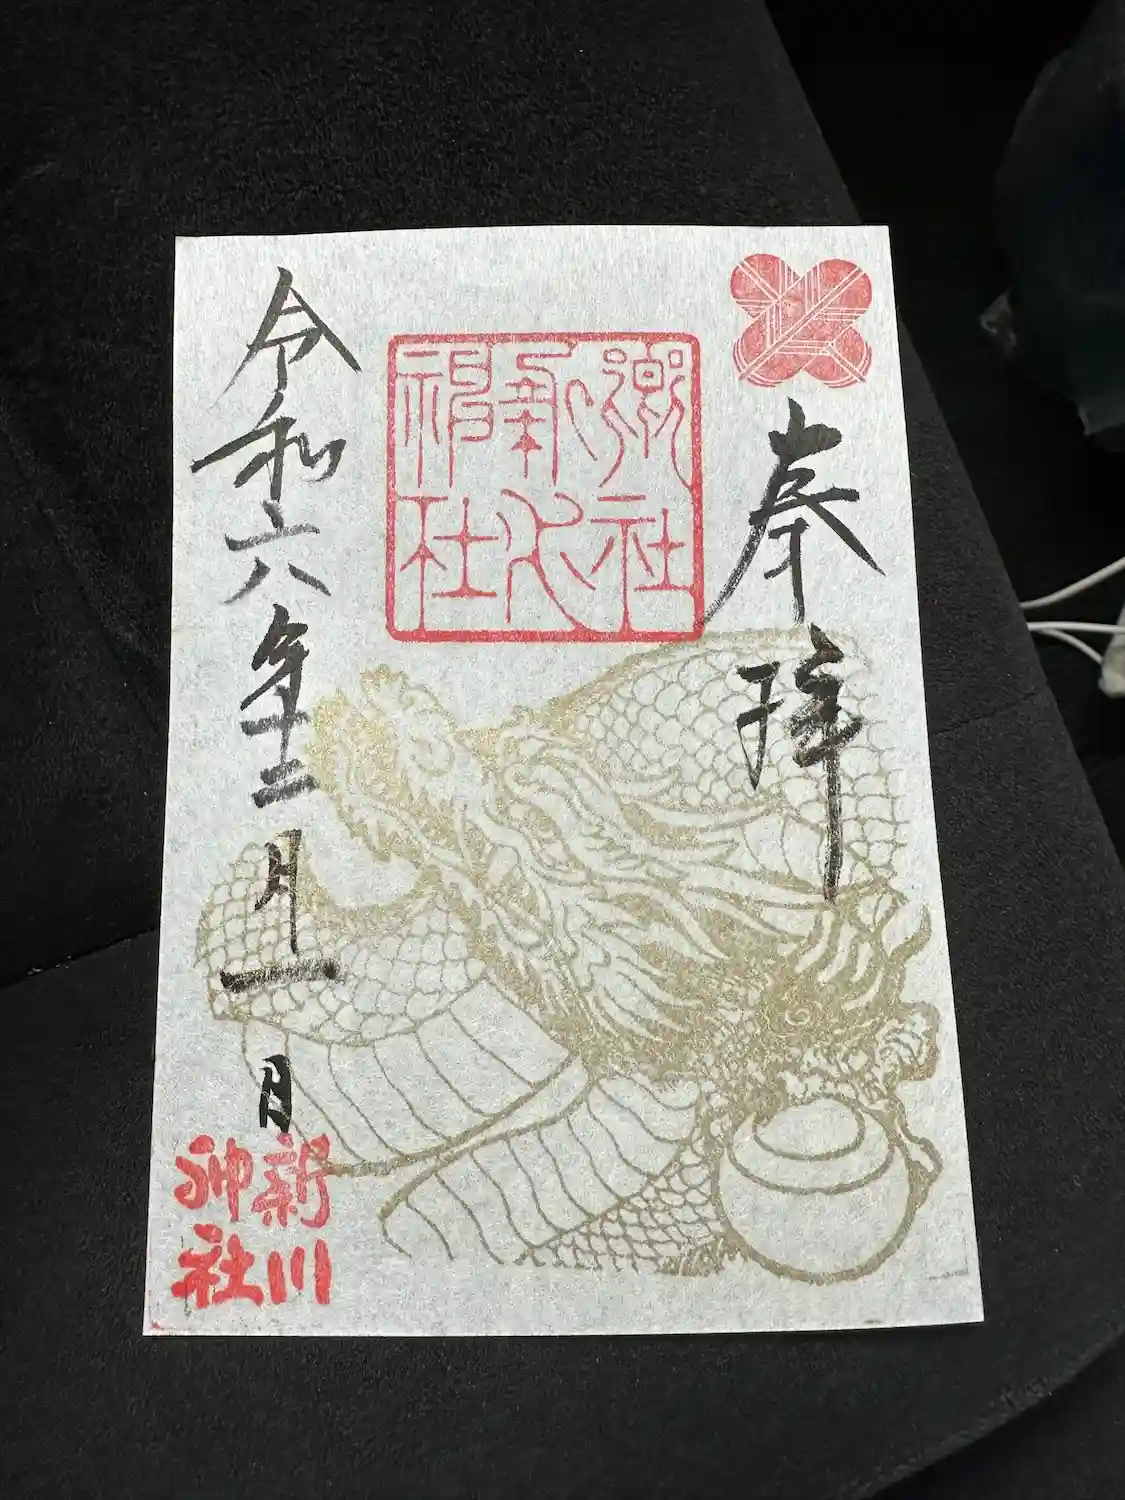 奉拝
郷社
新川
神社
令和六年十二月一日
新川
神社